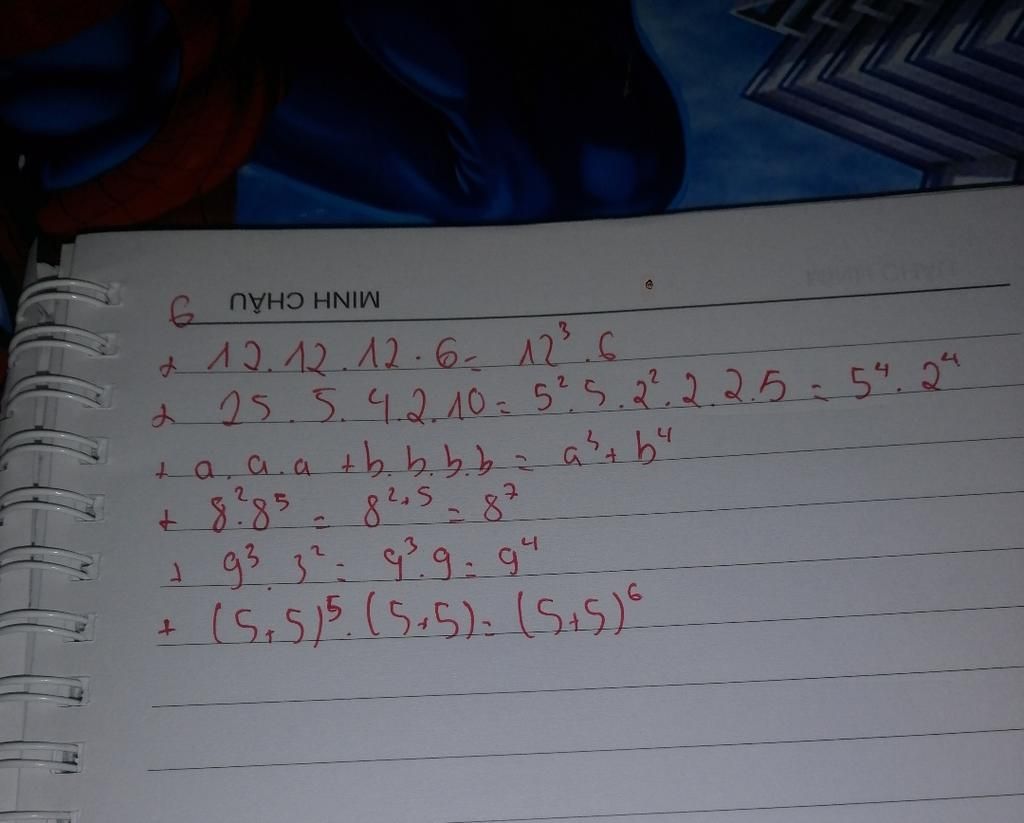 6 MINH CHÂU
+ 12.12.12.6= 12³.6
+ 25.5.4.2.10 = 5².5.2².2.2.5 = 5⁴.2⁴
+ a.a.a + b.b.b.b = a³ + b⁴
+ 8².8⁵ = 8²⁺⁵ = 8⁷
+ 9³.3² = 9³.9 = 9⁴
+ (5+5)⁵.(5+5) = (5+5)⁶